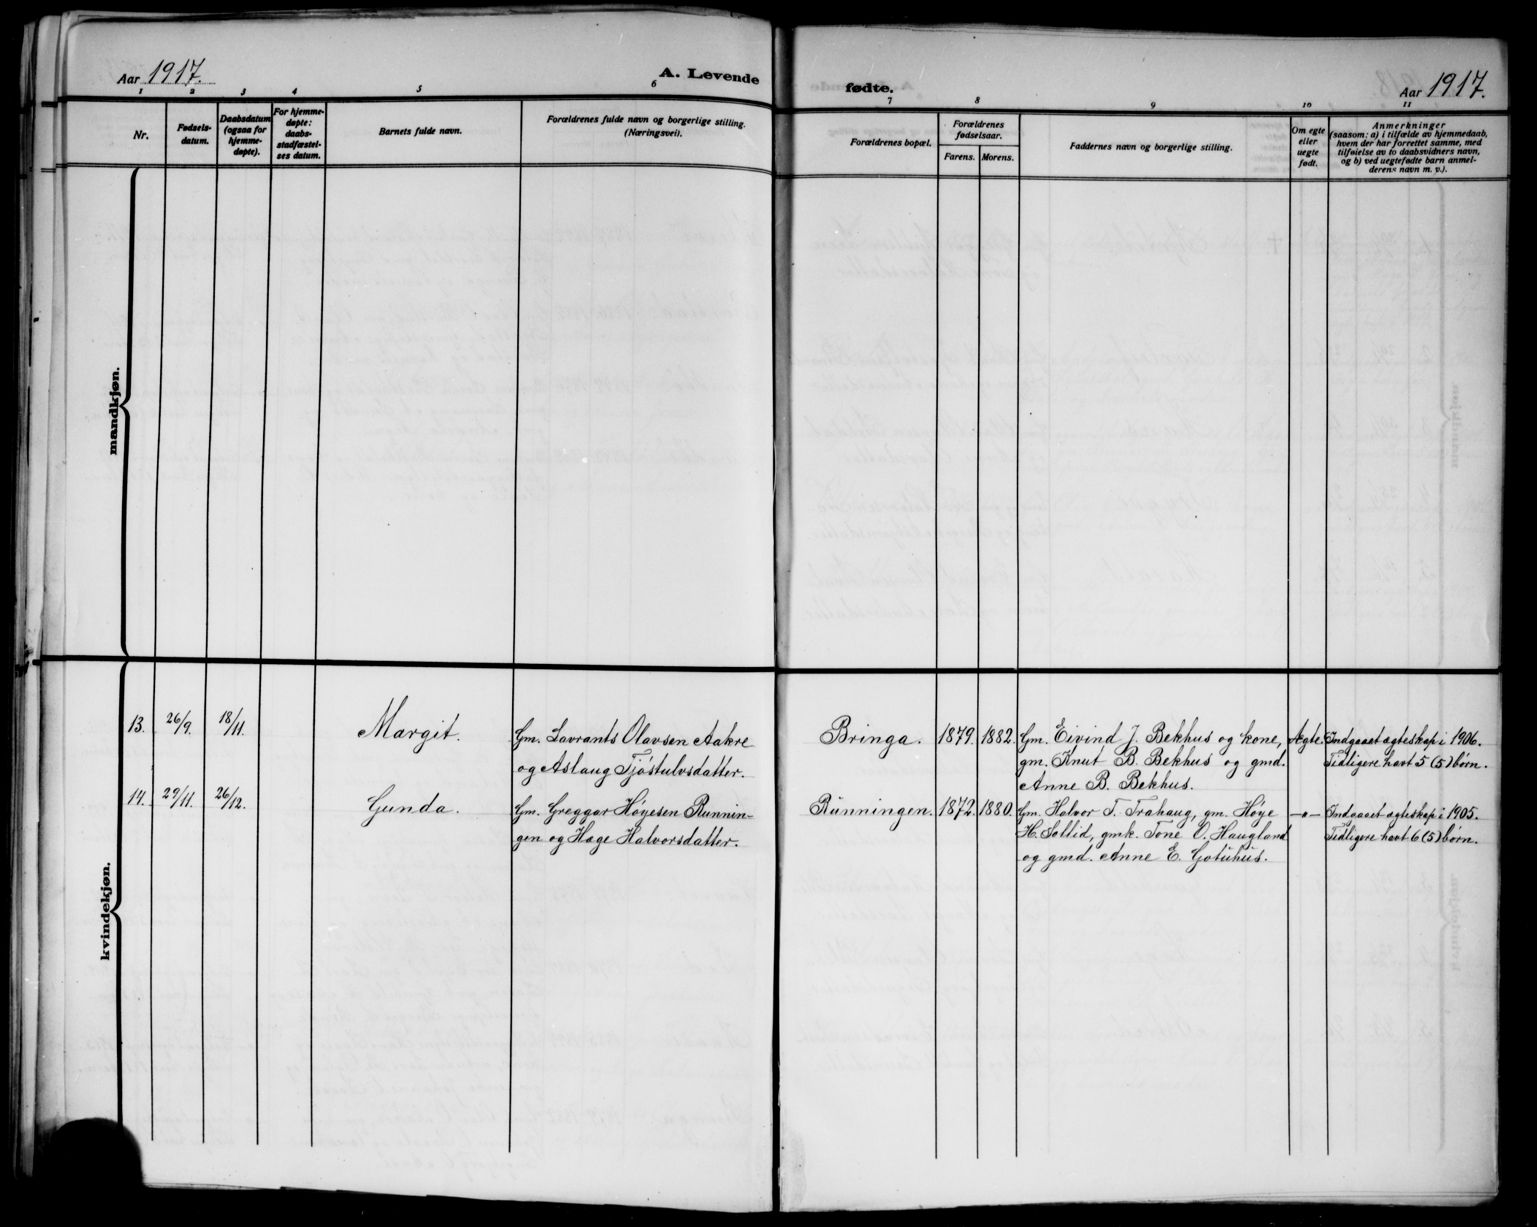 Aar 1917.
A. Levende
fødte.
Aar 1917.
1 2 3 4 5 6 7 8 9 10 11
Nr.
Fødsels-
datum.
Daabsdatum
(ogsaa for
hjemme-
døpte).
For hjemme-
døpte:
daabs-
stadfæstel-
ses datum.
Barnets fulde navn.
Forældrenes fulde navn og borgerlige stilling.
(Næringsvei).
Forældrenes bopæl.
Forældrenes
fødselsaar.
Farens. Morens.
Faddernes navn og borgerlige stilling.
Om egte
eller
uegte
født.
Anmerkninger
(saasom: a) i tilfælde av hjemmedaab,
hvem der har forrettet samme, med
tilføielse av to daabsvidners navn,
og b) ved uegtefødte barn anmel-
derens navn m. v.).
mandkjøn.
kvindekjøn.
13. 26/9. 18/11. Margit.
Gm. Lavrants Olavsen Aakre
og Aslaug Tjøstulvsdatter.
Bringa. 1879. 1882.
Gm. Eivind J. Bekhus og kone,
gm. Knut B. Bekhus og gmd.
Anne B. Bekhus.
Ægte.
Indgaaet egteskap i 1906.
Tidligere havt 5 (5) børn.
14. 29/11. 26/12. Gunda.
Gm. Greggar Høyesen Runnin-
gen og Hæge Halvorsdatter.
Runningen. 1872. 1880.
Gm. Halvor T. Trahaug, gm. Høye
H. Sollid, gmk. Tone O. Haugland
og gmd. Anne E. Gotuhus.
-"-
Indgaaet egteskap i 1905.
Tidligere havt 6 (5) børn.